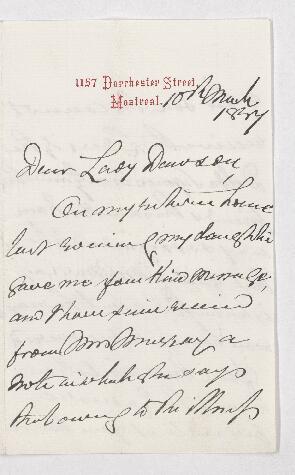 1157 Dorchester Street,
Montreal. 10th March
1887
Dear Lady Dawson,
On my return home
last evening my daughter
gave me your kind message,
and I have since received
from Mrs Murray a
note in which she says
that owing to the illness